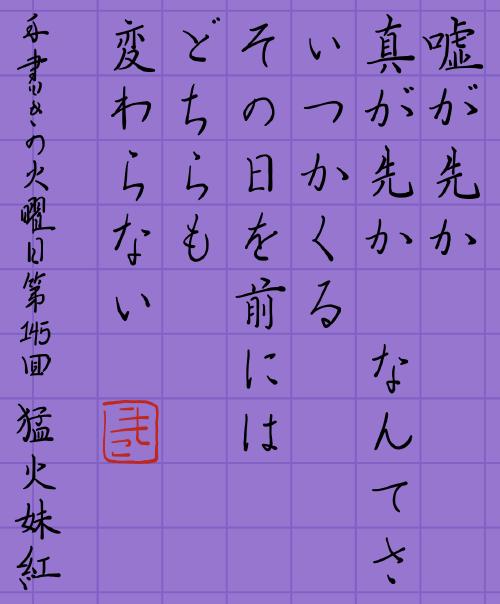 嘘が先か
真が先か なんてさ
いつかくる
その日を前には
どちらも
変わらない
手書きの火曜日第145回 猛火妹紅